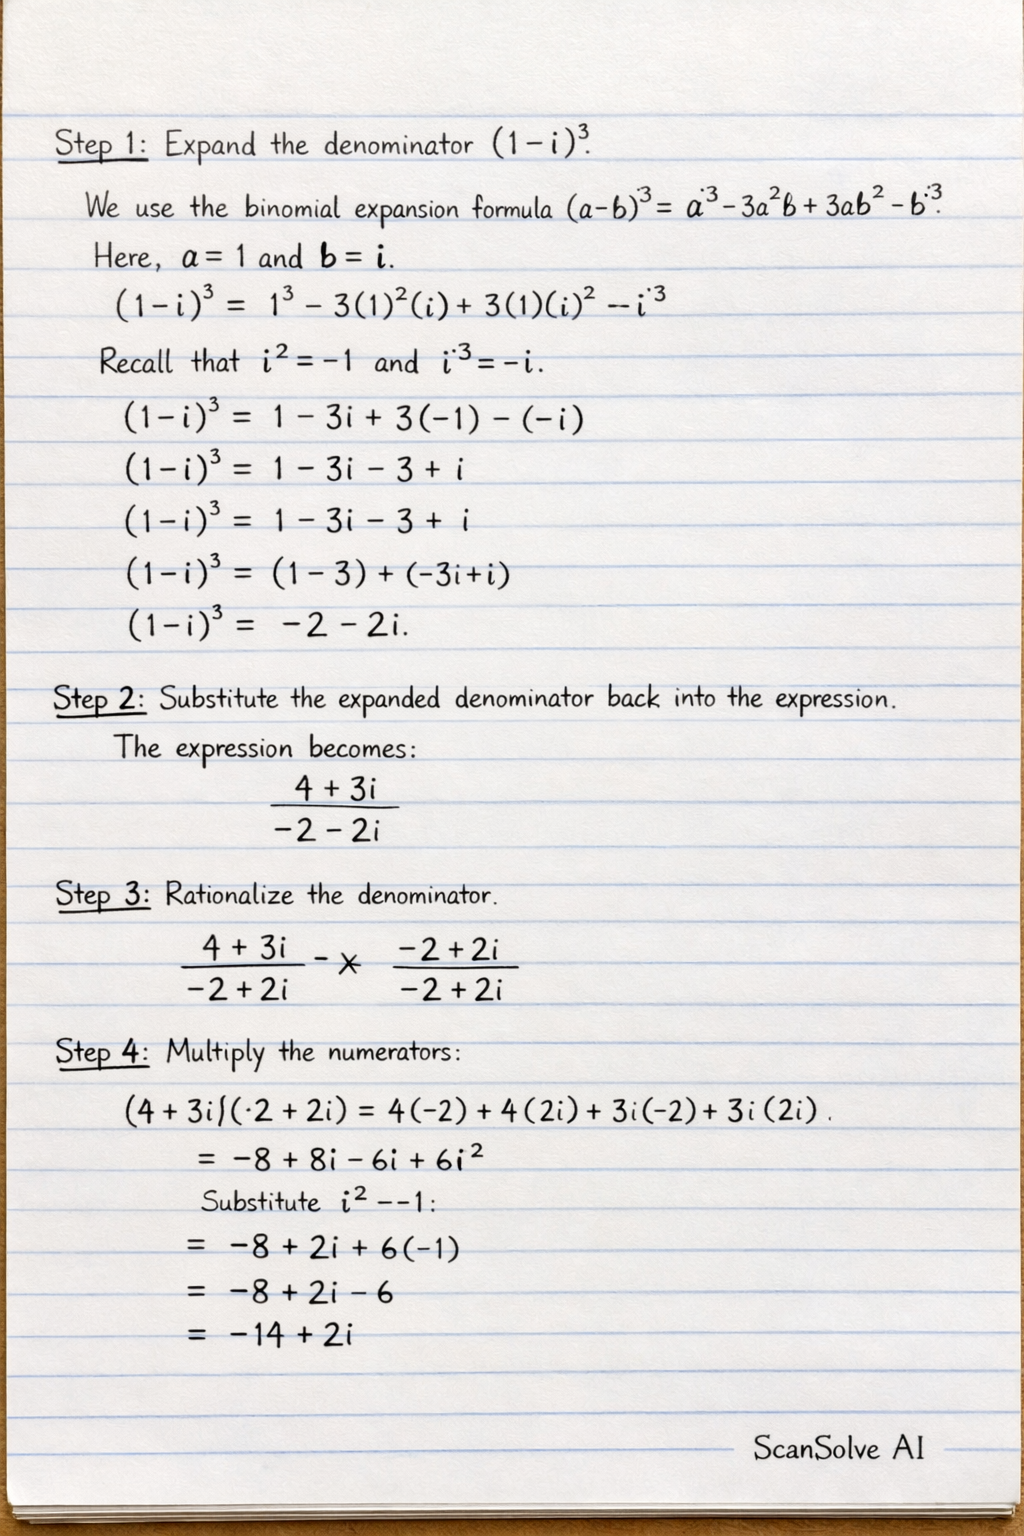 Step 1: Expand the denominator (1-i)³.
We use the binomial expansion formula (a-b)³ = a³ - 3a²b + 3ab² - b³.
Here, a = 1 and b = i.
(1-i)³ = 1³ - 3(1)²(i) + 3(1)(i)² -- i³
Recall that i² = -1 and i³ = -i.
(1-i)³ = 1 - 3i + 3(-1) - (-i)
(1-i)³ = 1 - 3i - 3 + i
(1-i)³ = 1 - 3i - 3 + i
(1-i)³ = (1-3) + (-3i+i)
(1-i)³ = -2 - 2i.
Step 2: Substitute the expanded denominator back into the expression.
The expression becomes:
4 + 3i
-2 - 2i
Step 3: Rationalize the denominator.
4 + 3i - × -2 + 2i
-2 + 2i -2 + 2i
Step 4: Multiply the numerators:
(4 + 3i)(·2 + 2i) = 4(-2) + 4(2i) + 3i(-2) + 3i(2i).
= -8 + 8i - 6i + 6i²
Substitute i² --1:
= -8 + 2i + 6(-1)
= -8 + 2i - 6
= -14 + 2i
ScanSolve AI